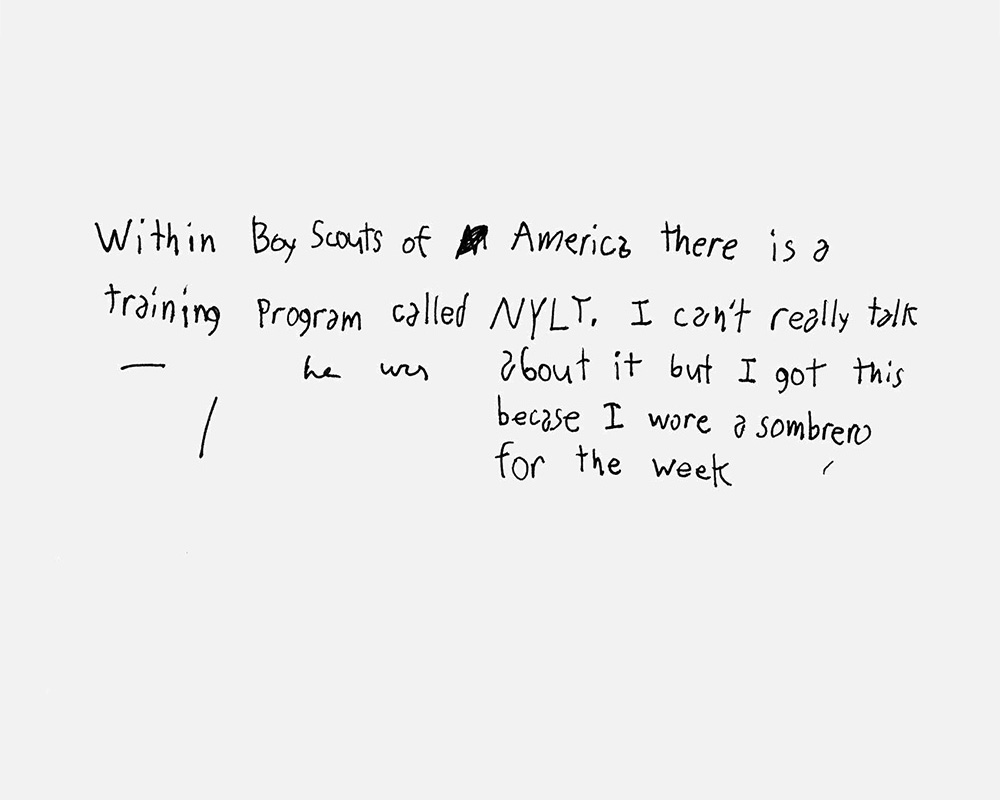 Within Boy Scouts of America there is a
training Program called NYLT. I can't really talk
he was about it but I got this
becase I wore a sombrero
for the week